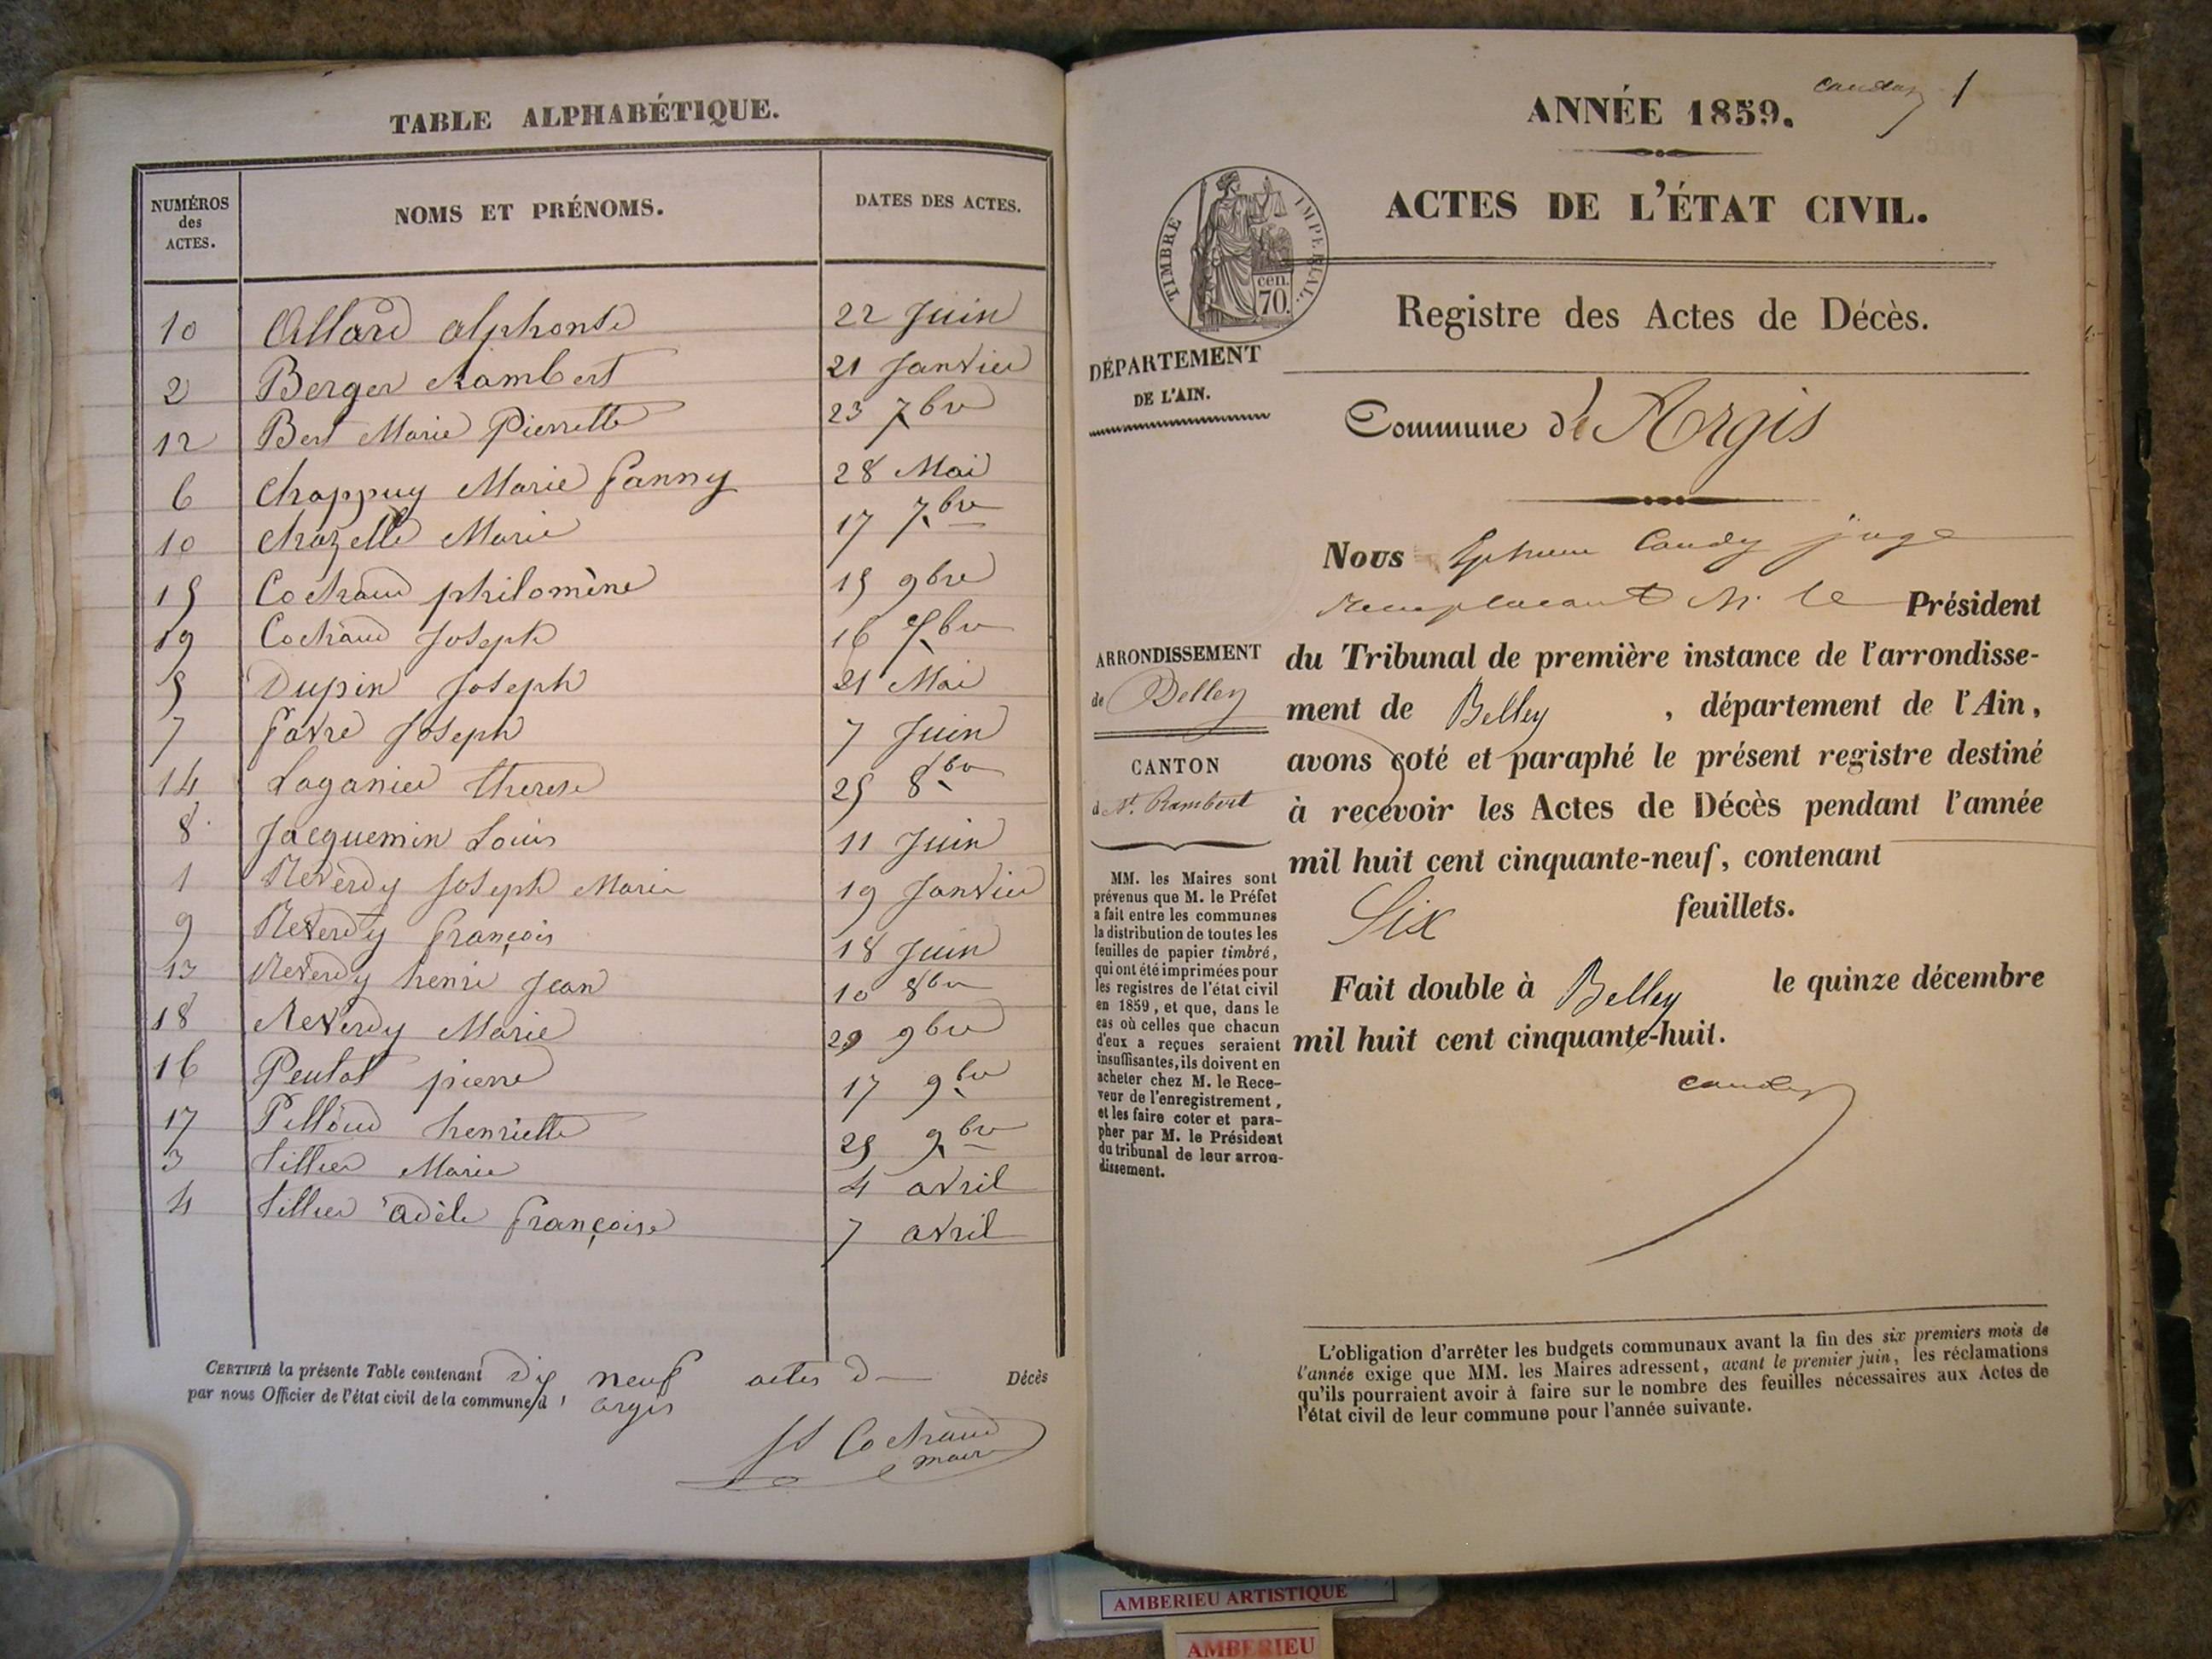 TABLE ALPHABÉTIQUE.
NUMÉROS des ACTES. NOMS ET PRÉNOMS. DATES DES ACTES.
10 Allard alphonse 22 Juin
2 Berger Rambert 21 Janvier
12 Bert Marie Pierrette 23 7bre
6 Chappuy Marie Fanny 28 Mai
10 Chazelle Marie 17 7bre
15 Cochaud philomène 15 9bre
19 Cochaud Joseph 16
5 Dupin Joseph 21 Mai
7 Favre Joseph 7 Juin
14 Laganier therese 25 8bre
8 Jacquemin Louis 11 Juin
1 Reverdy Joseph Marie 19 Janvier
9 Reverdy François 18 Juin
13 Reverdy henri Jean 10 8bre
18 Reverdy Marie 29 9bre
16 Peutot pierre 17 9bre
17 Pelloud henriette 25 9bre
3 tillier Marie 4 avril
4 tillier adèle françoise 7 avril
CERTIFIÉ la présente Table contenant Dix neuf actes d Décès
par nous Officier de l'état civil de la commune d' argis
Jh Cochaud
maire
Caudy 1
ANNÉE 1859.
TIMBRE IMPERIAL.
cen.
70.
ACTES DE L'ÉTAT CIVIL.
Registre des Actes de Décès.
DÉPARTEMENT
DE L'AIN.
Commune de Argis
Nous Caudy juge
remplacant M. le Président
du Tribunal de première instance de l'arrondisse-
ment de Belley , département de l'Ain,
avons coté et paraphé le présent registre destiné
à recevoir les Actes de Décès pendant l'année
mil huit cent cinquante-neuf, contenant
Six feuillets.
Fait double à Belley le quinze décembre
mil huit cent cinquante-huit.
Caudy
ARRONDISSEMENT
de Belley
CANTON
de St. Rambert
MM. les Maires sont
prévenus que M. le Préfet
a fait entre les communes
la distribution de toutes les
feuilles de papier timbré,
qui ont été imprimées pour
les registres de l'état civil
en 1859, et que, dans le
cas où celles que chacun
d'eux a reçues seraient
insuffisantes, ils doivent en
acheter chez M. le Rece-
veur de l'enregistrement,
et les faire coter et para-
pher par M. le Président
du tribunal de leur arron-
dissement.
L'obligation d'arrêter les budgets communaux avant la fin des six premiers mois de
l'année exige que MM. les Maires adressent, avant le premier juin, les réclamations
qu'ils pourraient avoir à faire sur le nombre des feuilles nécessaires aux Actes de
l'état civil de leur commune pour l'année suivante.
AMBERIEU ARTISTIQUE
AMBERIEU